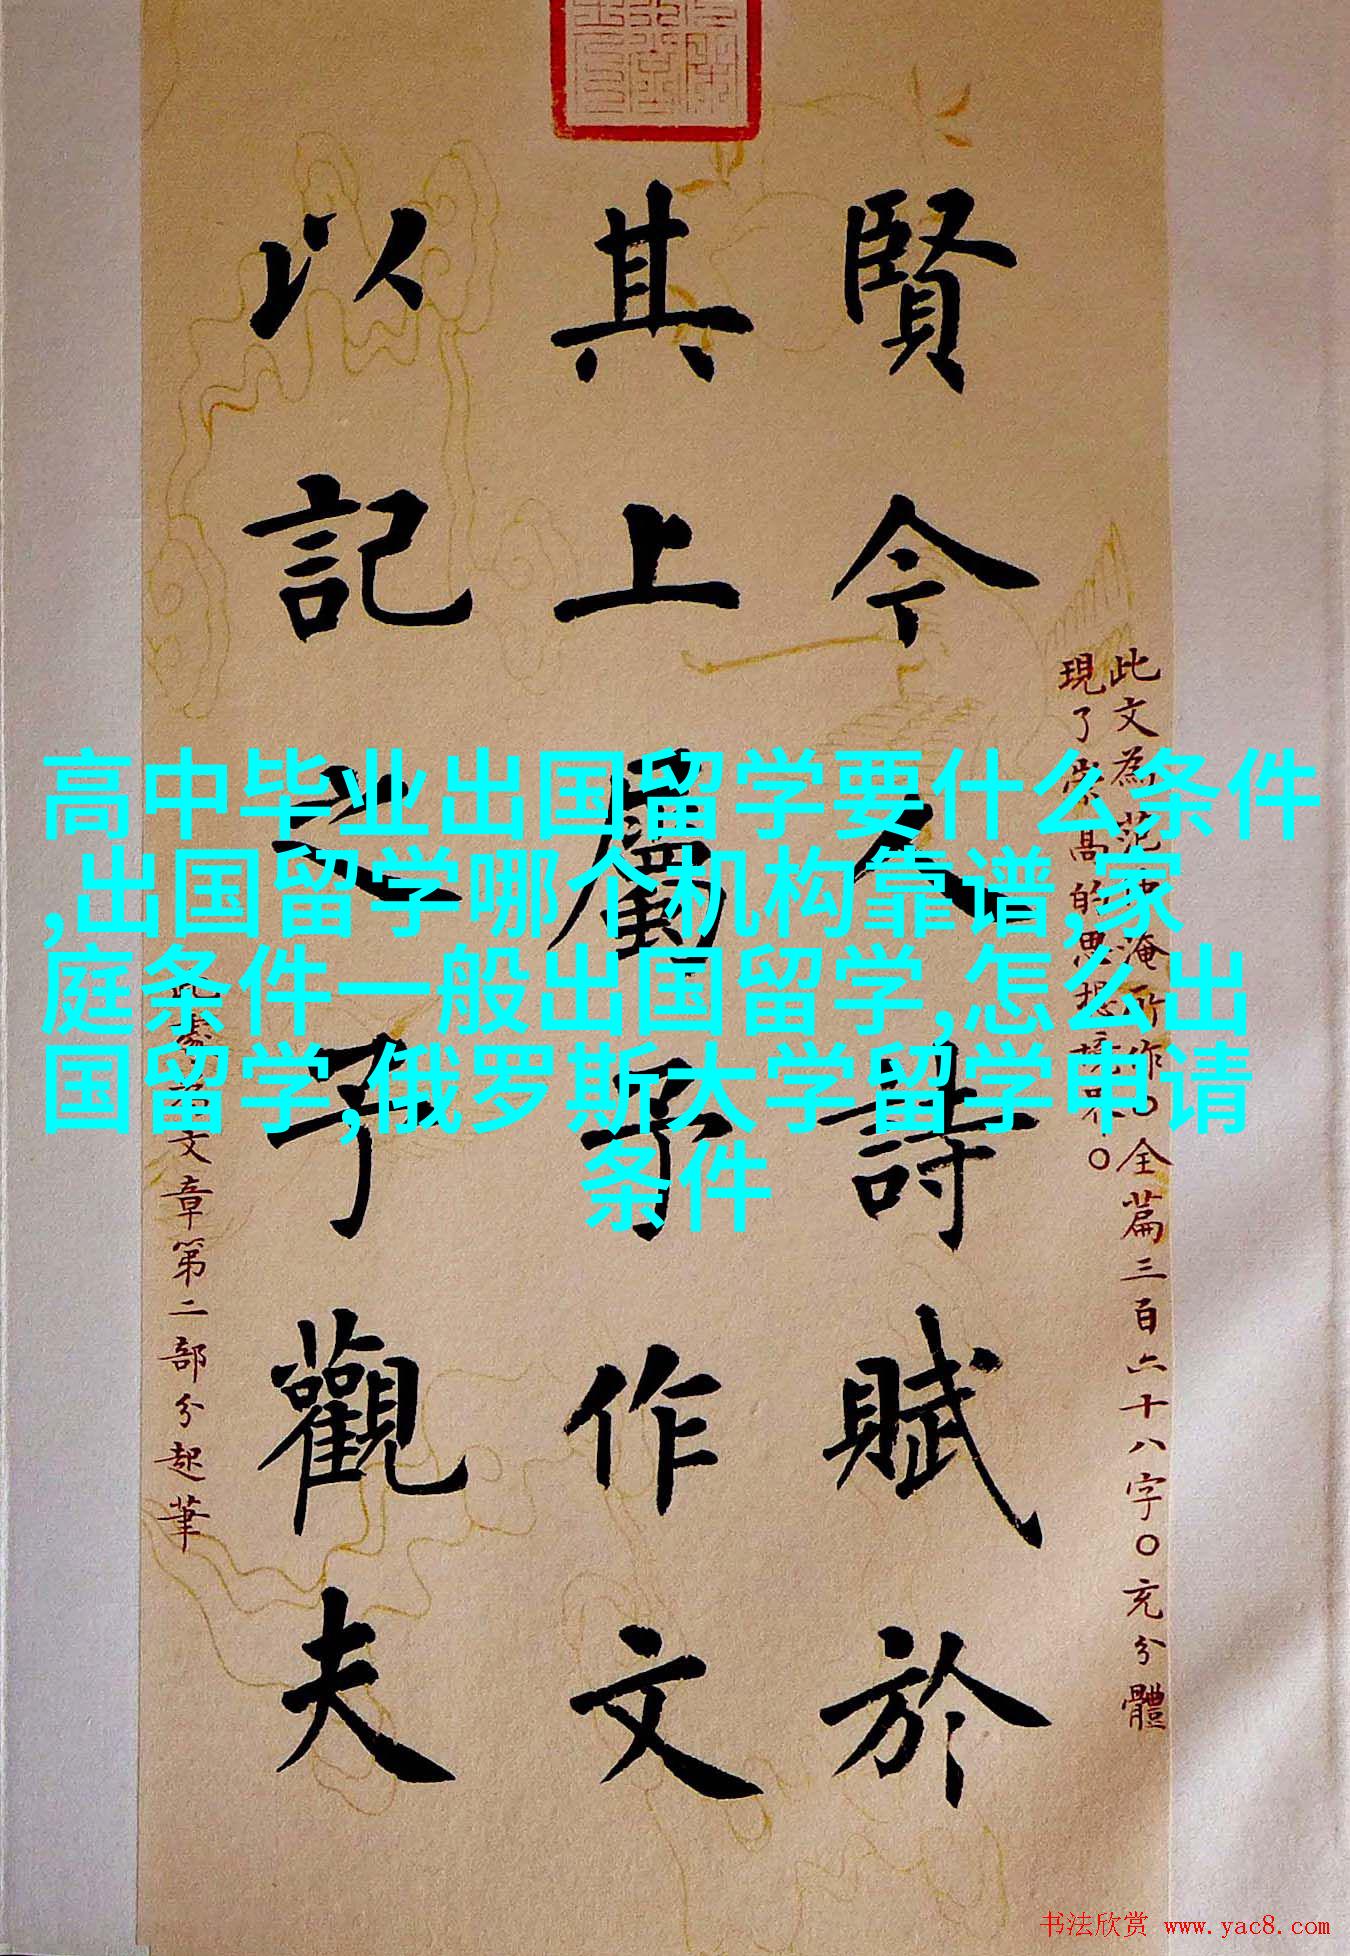 賢今人詩賦於
其上屬予作文
以記之予觀夫
此文為范仲淹所作〇全篇三百六十八字〇充分體
現了崇高的思想境界〇
此為文章第二部分起筆
高中毕业出国留学要什么条件
,出国留学哪个机构靠谱,家
庭条件一般出国留学,怎么出
国留学,俄罗斯大学留学申请
条件
书法欣赏 www.yac8.com